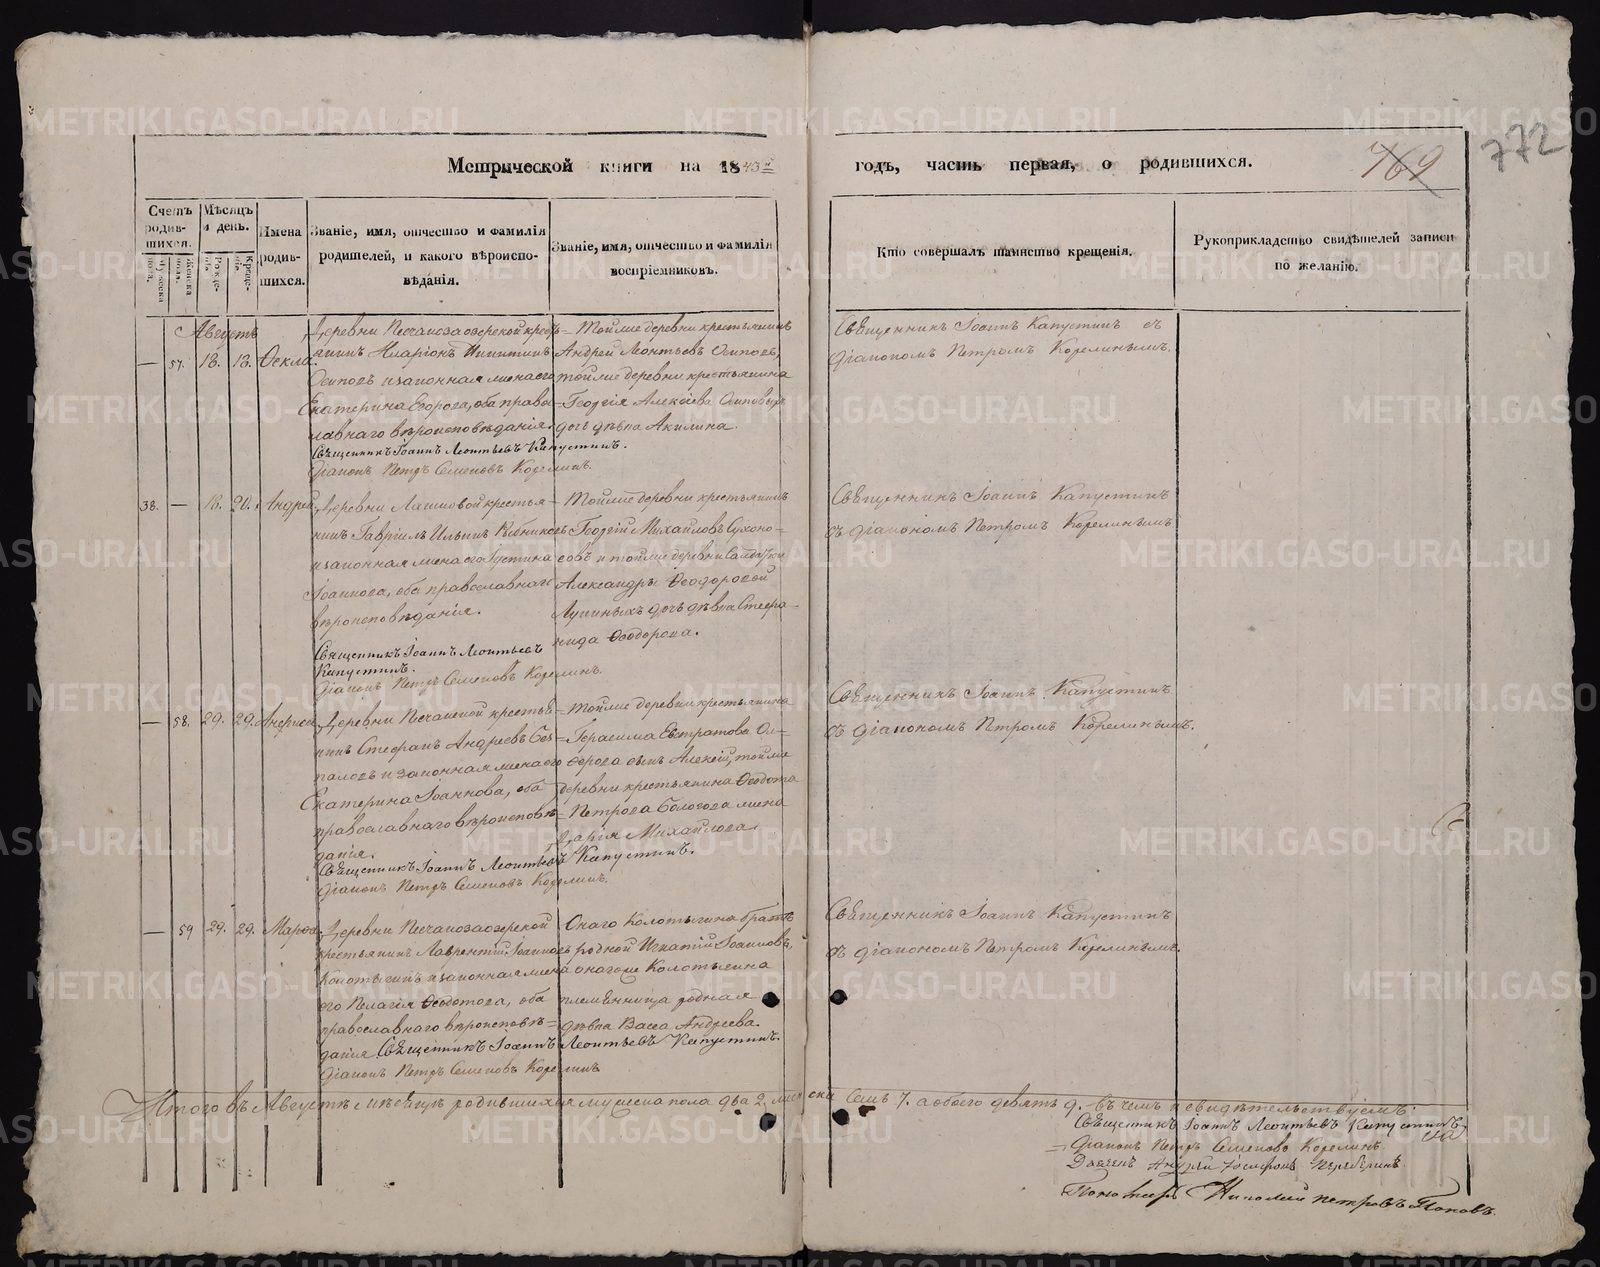 Метрической книги на 1843й годъ, часть первая, о родившихся.
769
772
Счетъ родив-
шихся.
Мужеска пола.
Женска пола.
Мѣсяцъ
и день.
Рожде-
нія.
Креще-
нія.
Имена
родив-
шихся.
Званіе, имя, отчество и фамилія
родителей, и какого вѣроиспо-
вѣданія.
Званіе, имя, отчество и фамилія
воспріемниковъ.
Кто совершалъ таинство крещенія.
Рукоприкладство свидѣтелей записи
по желанію.
Августъ
— 57. 13. 13. Ѳекла.
Деревни Песчанозаозерской кресть-
янинъ Иларіонъ Никитинъ
Осиповъ и законная жена его
Екатерина Егорова, оба право-
лавнаго вѣроисповѣданія.
Священникъ Іоаннъ Леонтьевъ Капустинъ.
Діаконъ Петръ Семеновъ Корелинъ.
Тойже деревни крестьянинъ
Андрей Леонтьевъ Осиповъ,
тойже деревни крестьянина
Георгія Алексѣева Осиповыхъ
дочь дѣвка Акилина.
Священникъ Іоаннъ Капустинъ съ
діакономъ Петромъ Корелинымъ.
38. — 18. 20. Андрей.
Деревни крестья-
нинъ Гавріилъ Ильинъ
и законная жена его Іустина
Іоаннова, оба православнаго
вѣроисповѣданія.
Священникъ Іоаннъ Леонтьевъ
Капустинъ.
Діаконъ Петръ Семеновъ Корелинъ.
Тойже деревни крестьянинъ
Георгій Михайловъ Сухоно-
совъ и тойже деревни
Александръ Ѳеодоровой
дочь дѣвка Стефа-
нида Ѳеодорова.
Священникъ Іоаннъ Капустинъ
съ діакономъ Петромъ Корелинымъ
— 58. 29. 29. Анфиса
Деревни Песчанской крестья-
нинъ Стефанъ Андреевъ
и законная жена его
Екатерина Іоаннова, оба
православнаго вѣроисповѣ-
данія.
Священникъ Іоаннъ Леонтьевъ Капустинъ.
Діаконъ Петръ Семеновъ Корелинъ.
Тойже деревни крестьянина
Герасима Евстратова
сынъ Алексѣй, тойже
деревни крестьянина Ѳедота
Петрова жена
Дарія Михайлова.
Священникъ Іоаннъ Капустинъ
съ діакономъ Петромъ Корелинымъ.
— 59 29. 29. Марѳа.
Деревни Песчанозаозерской
крестьянинъ Лаврентій Іоанновъ
Колотыгинъ и законная жена
его Пелагія Ѳедотова, оба
православнаго вѣроисповѣ-
данія Священникъ Іоаннъ Леонтьевъ Капустинъ.
Діаконъ Петръ Семеновъ Корелинъ
Онаго Колотыгина братъ
родной Игнатій Іоанновъ,
онагоже Колотыгина
племянница родная
дѣвка Васса Андреева.
Священникъ Іоаннъ Капустинъ
съ діакономъ Петромъ Корелинымъ.
Итого въ Августѣ мѣсяцѣ родившихся мужеска пола два 2, женска семь 7. а обоего девять 9. Въ чемъ и свидѣтельствуемъ:
Священникъ Іоаннъ Леонтьевъ Капустинъ
Діаконъ Петръ Семеновъ Корелинъ
Дьячекъ Андрей
Пономарь Николай Петровъ Поповъ.
METRIKI.GASO-URAL.RU